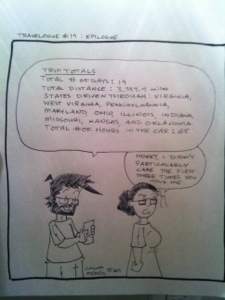 TRAVELOGUE #19 : EPILOGUE
TRIP TOTALS
TOTAL # OF DAYS: 19
TOTAL DISTANCE : 3,559.4 MILES
STATES DRIVEN THROUGH: VIRGINIA,
WEST VIRGINIA, PENNSYLVANNIA,
MARYLAND, OHIO, ILLINOIS, INDIANA,
MISSOURI, KANSAS, AND OKLAHOMA.
TOTAL # OF HOURS IN THE CAR : 65
HONEY, I DIDN'T
PARTICULARLY
CARE THE FIRST
THREE TIMES YOU
ME